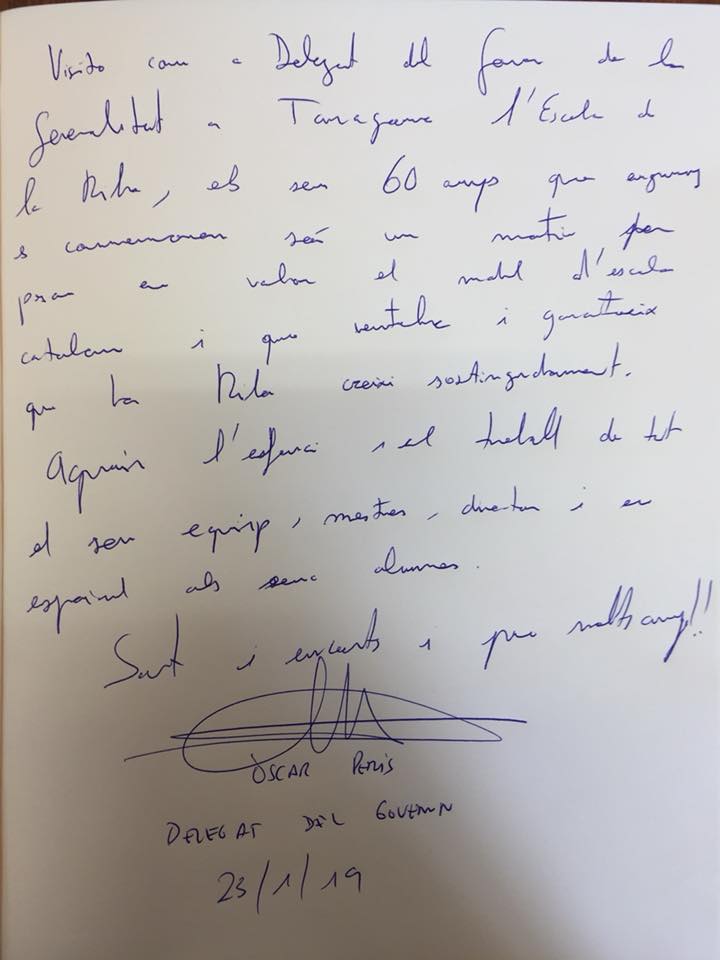 Visito com a Delegat del Govern de la
Generalitat a Tarragona l'Escola de
la Riba, els seus 60 anys que enguany
es commemoren serà un motiu per
posar en valor el model d'escola
catalana i que                i garanteix
que La Riba creixi sostingudament.
Agraeixo l'esforç i el treball de tot
el seu equip, mestres, director i en
especial als seus alumnes.
Sort i encerts i per molts anys!!
ÒSCAR PERIS
DELEGAT DEL GOVERN
23/1/19